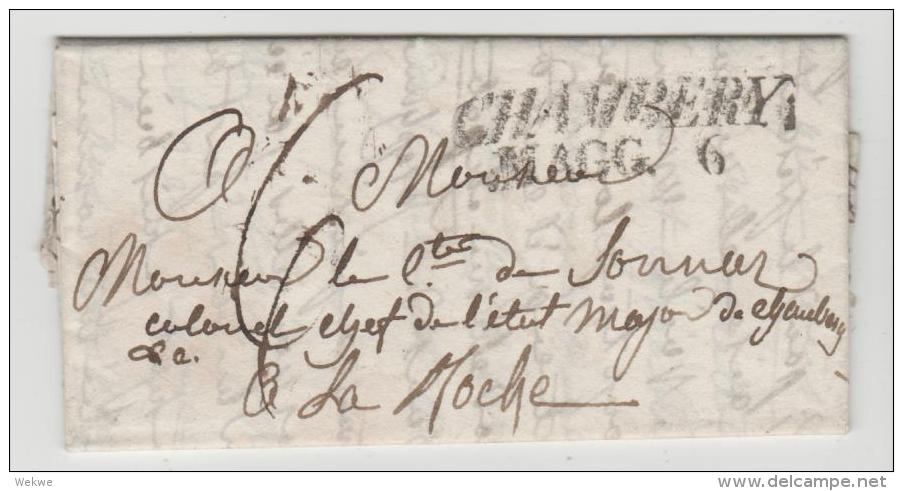 CHAMBERY
MAGG. 6
6
A Monsieur
Monsieur le C.te de Sonnaz
colonel chef de l'état major de Chambery
&c.
à La Roche
Wekwe
delcampe.net